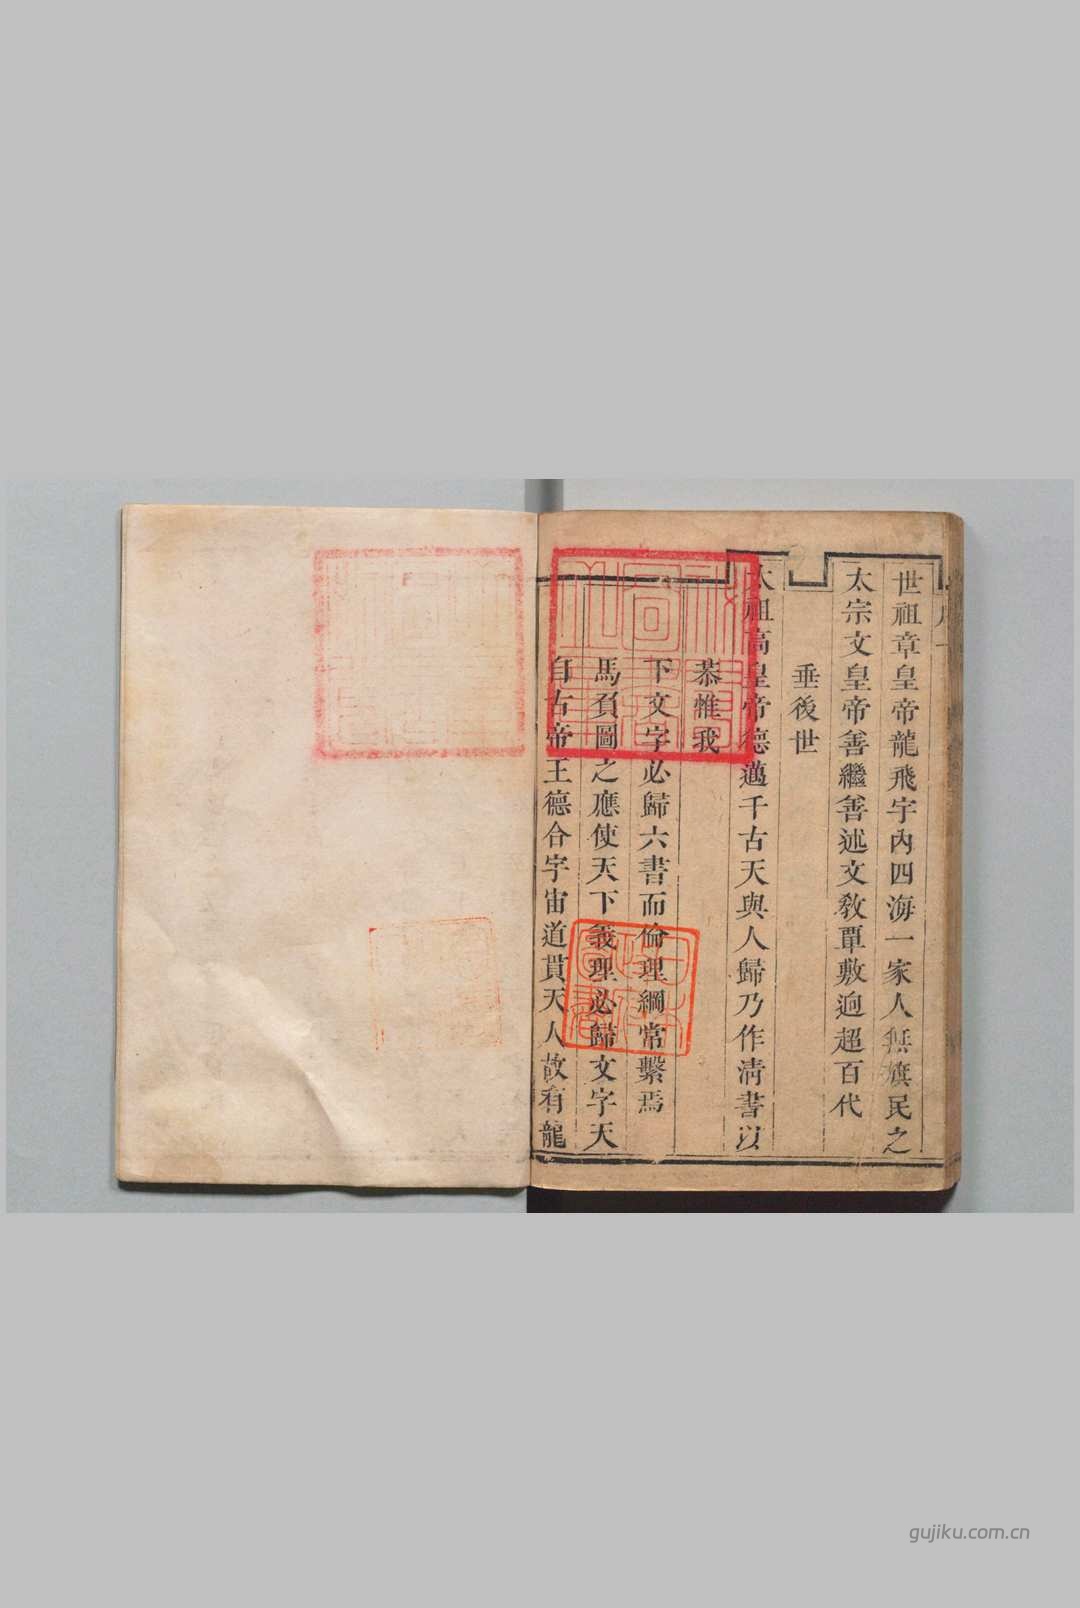 自古帝王德合宇宙道貫天人故有龍
馬負圖之應使天下義理必歸文字天
下文字必歸六書而倫理綱常繫焉
恭惟我
太祖高皇帝德邁千古天與人歸乃作淸書以
垂後世
太宗文皇帝善繼善述文敎覃敷逈超百代
世祖章皇帝龍飛宇內四海一家人無旗民之
gujiku.com.cn